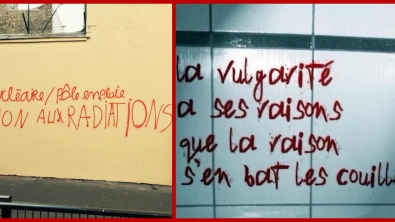 cléaire/pôle emploie
ON AUX RADIATIONS
la vulgarité
a ses raisons
que la raison
s'en bat les couille